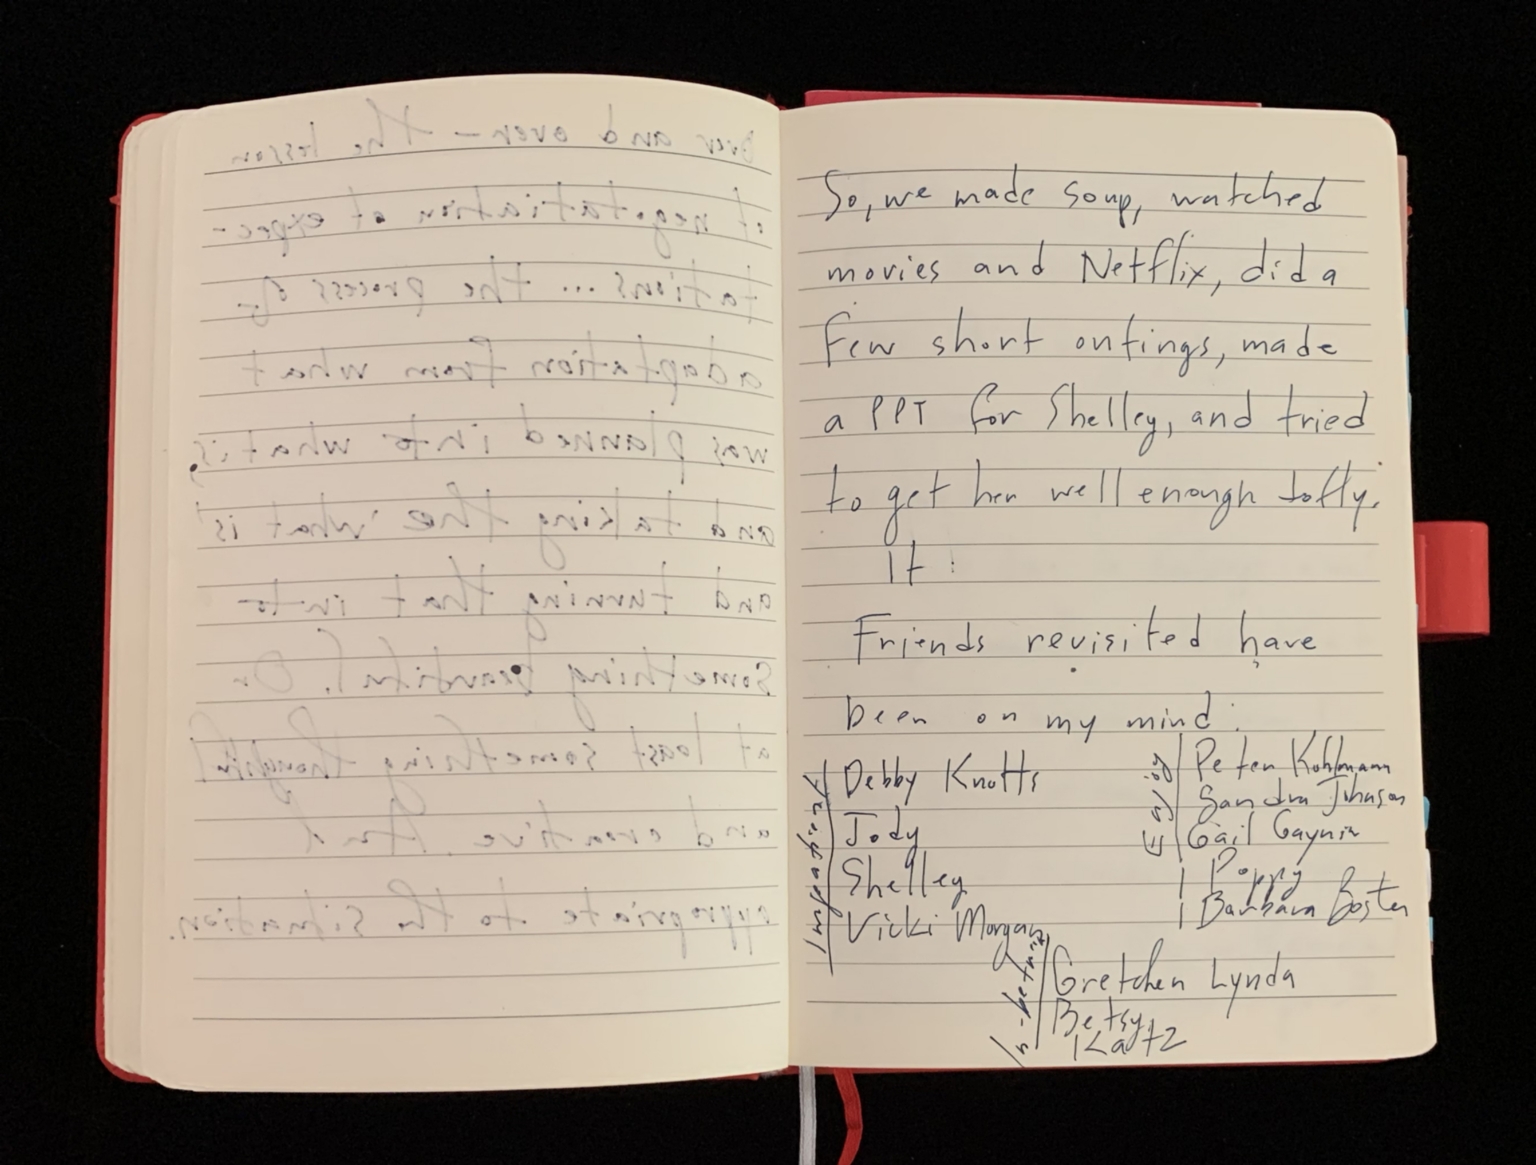 over and over - the lesson
of negotatiation of expec-
tations ... the process of
adaptation from what
was planned into what is,
and taking the 'what is'
and turning that into
something beautiful. Or
at least something thoughtful
and creative. And
appropriate to the situation.
So, we made soup, watched
movies and Netflix, did a
few short outings, made
a PPT for Shelley, and tried
to get her well enough to fly.
It
Friends revisited have
been on my mind:
Impatient
Debby Knotts
Jody
Shelley
Vicki Morgan
Enjoy
Peter Kohlmann
Sandra Johnson
Gail
Poppy
Barbara Boster
In-between
Gretchen Lynda
Betsy
Katz